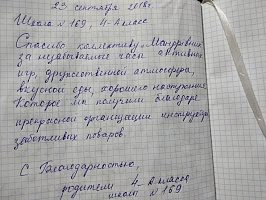 23 сентября 2018г
Школа №169, 4-А класс
Спасибо коллективу „Мандрівник"
за незабываемые часы активных
игр, дружественной атмосферы,
вкусной еды, хорошего настроения
которое мы получили благодаря
прекрасной организации инструкторов
заботливых поваров.
С благодарностью,
родители 4-А класса
школы №169